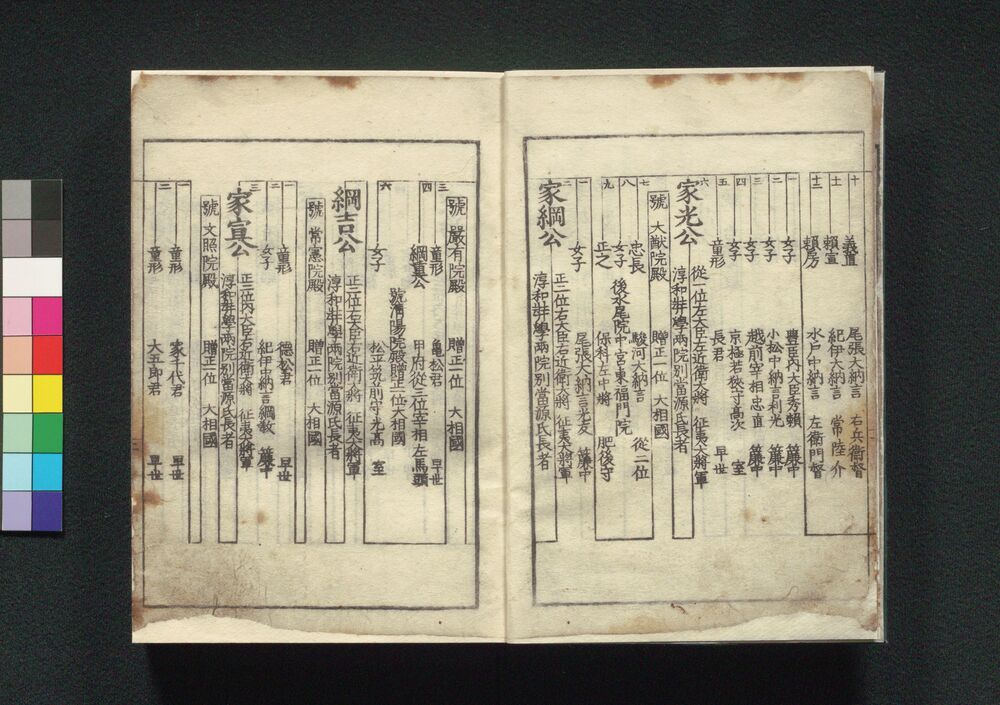 十 義直 尾張大納言 右兵衛督
十一 頼宣 紀伊大納言 常陸介
十二 頼房 水戸中納言 左衛門督
一 女子 豊臣内大臣秀頼 簾中
二 女子 小松中納言利光 簾中
三 女子 越前宰相忠直 簾中
四 女子 京極若狭守高次 室
五 童形 長君 早世
六 家光公 従一位左大臣左近衛大将 征夷大将軍
淳和奘學両院別當源氏長者
號 大猷院殿 贈正一位 大相國
七 忠長 駿河大納言 従二位
八 女子 後水尾院中宮東福門院
九 正之 保科左中将 肥後守
一 女子 尾張大納言光友 簾中
二 家綱公 正二位右大臣右近衛大将 征夷大将軍
淳和奘學両院別當源氏長者
號 嚴有院殿 贈正一位 大相國
三 童形 亀松君 早世
四 綱重公 甲府従三位宰相左馬頭
號清陽院殿贈正一位大相國
六 女子 松平筑前守光高 室
綱吉公 正二位右大臣右近衛大将 征夷大将軍
淳和奘學両院別當源氏長者
號 常憲院殿 贈正一位 大相國
一 童形 徳松君 早世
二 女子 紀伊中納言綱教 簾中
三 家宣公 正二位内大臣右近衛大将 征夷大将軍
淳和奘學両院別當源氏長者
號 文照院殿 贈正一位 大相國
一 童形 家千代君 早世
二 童形 大五郎君 早世